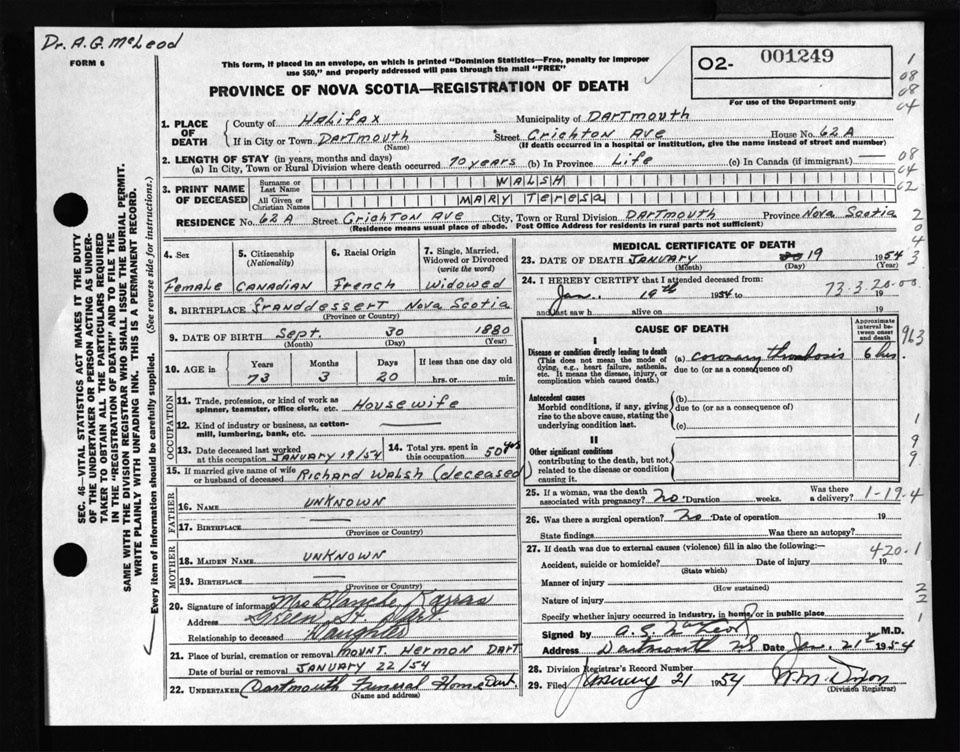 Dr. A.G. McLeod
FORM 6
This form, if placed in an envelope, on which is printed "Dominion Statistics—Free, penalty for improper
use $50," and properly addressed will pass through the mail "FREE"
PROVINCE OF NOVA SCOTIA—REGISTRATION OF DEATH
O2- 001249
For use of the Department only
1
08
08
04
08
04
02
2
0
4
3
SEC. 46—VITAL STATISTICS ACT MAKES IT THE DUTY
OF THE UNDERTAKER OR PERSON ACTING AS UNDER-
TAKER TO OBTAIN ALL THE PARTICULARS REQUIRED
IN THE "REGISTRATION OF DEATH" AND TO FILE THE
SAME WITH THE DIVISION REGISTRAR WHO SHALL ISSUE THE BURIAL PERMIT.
WRITE PLAINLY WITH UNFADING INK. THIS IS A PERMANENT RECORD.
Every item of information should be carefully supplied. (See reverse side for instructions.)
1. PLACE OF DEATH
County of Halifax Municipality of Dartmouth
If in City or Town Dartmouth Street Crichton Ave House No. 62A
(Name) (If death occurred in a hospital or institution, give the name instead of street and number)
2. LENGTH OF STAY (in years, months and days)
(a) In City, Town or Rural Division where death occurred 70 years (b) In Province Life (c) In Canada (if immigrant) —
3. PRINT NAME OF DECEASED
Surname or Last Name WALSH
All Given or Christian Names MARY Teresa
RESIDENCE No. 62A Street Crichton Ave City, Town or Rural Division Dartmouth Province Nova Scotia
(Residence means usual place of abode. Post Office Address for residents in rural parts not sufficient)
4. Sex Female
5. Citizenship (Nationality) Canadian
6. Racial Origin French
7. Single, Married, Widowed or Divorced (write the word) Widowed
8. BIRTHPLACE Granddessert Nova Scotia
(Province or Country)
9. DATE OF BIRTH Sept. 30 1880
(Month) (Day) (Year)
10. AGE in Years Months Days If less than one day old
73 3 20 hrs. or min.
OCCUPATION
11. Trade, profession, or kind of work as
spinner, teamster, office clerk, etc. Housewife
12. Kind of industry or business, as cotton-
mill, lumbering, bank, etc. —
13. Date deceased last worked
at this occupation January 19/54
14. Total yrs. spent in
this occupation 50 yrs
15. If married give name of wife
or husband of deceased Richard Walsh (deceased)
FATHER
16. NAME unknown
17. BIRTHPLACE —
(Province or Country)
MOTHER
18. MAIDEN NAME unknown
19. BIRTHPLACE —
(Province or Country)
20. Signature of informant Mrs Blanche
Address Green St. Dart.
Relationship to deceased Daughter
21. Place of burial, cremation or removal Mount Hermon Dart
Date of burial or removal January 22/54
22. UNDERTAKER Dartmouth Funeral Home Dart.
(Name and address)
MEDICAL CERTIFICATE OF DEATH
23. DATE OF DEATH January 19 1954
(Month) (Day) (Year)
24. I HEREBY CERTIFY that I attended deceased from:
Jan. 19th 1954 to 19
73-3-20-00
and last saw h alive on 19
CAUSE OF DEATH
Approximate interval between onset and death
I
Disease or condition directly leading to death
(This does not mean the mode of
dying, e.g., heart failure, asthenia,
etc. It means the disease, injury, or
complication which caused death.)
(a) coronary thrombosis 6 hrs.
due to (or as a consequence of)
963
Antecedent causes
Morbid conditions, if any, giving
rise to the above cause, stating the
underlying condition last.
(b)
due to (or as a consequence of)
(c)
1
II
Other significant conditions
contributing to the death, but not
related to the disease or condition
causing it.
9
9
25. If a woman, was the death
associated with pregnancy? no Duration weeks. Was there a delivery? 1-19-4
26. Was there a surgical operation? no Date of operation 19
State findings Was there an autopsy?
27. If death was due to external causes (violence) fill in also the following:— 420.1
Accident, suicide or homicide? Date of injury 19
(State which)
Manner of injury
(How sustained)
Nature of injury
Specify whether injury occurred in industry, in home, or in public place
2
2
1
Signed by A. G. McLeod M.D.
Address Dartmouth NS Date Jan. 21st 1954
28. Division Registrar's Record Number
29. Filed January 21 1954 W. M. Dixon
(Division Registrar)